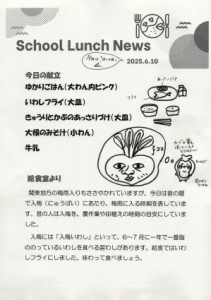 School Lunch News
2025.6.10
今日の献立
ゆかりごはん(大わん内ピンク)
いわしフライ(大皿)
きゅうりとかぶのあっさりづけ(大皿)
大根のみそ汁(小わん)
牛乳
給食室より
関東地方の梅雨入りもささやかれていますが、今日は昔の暦
で入梅(にゅうばい)にあたり、梅雨に入る時期を表していま
す。昔の人は入梅を、農作業や田植えの時期の目安にしていま
した。
入梅には「入梅いわし」といって、6~7月に一年で一番脂
ののっているいわしを食べる習わしがあります。給食ではいわ
しフライにしました。味わって食べましょう。